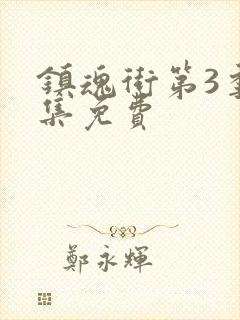 鎮魂街第3
集免費
鄭永輝